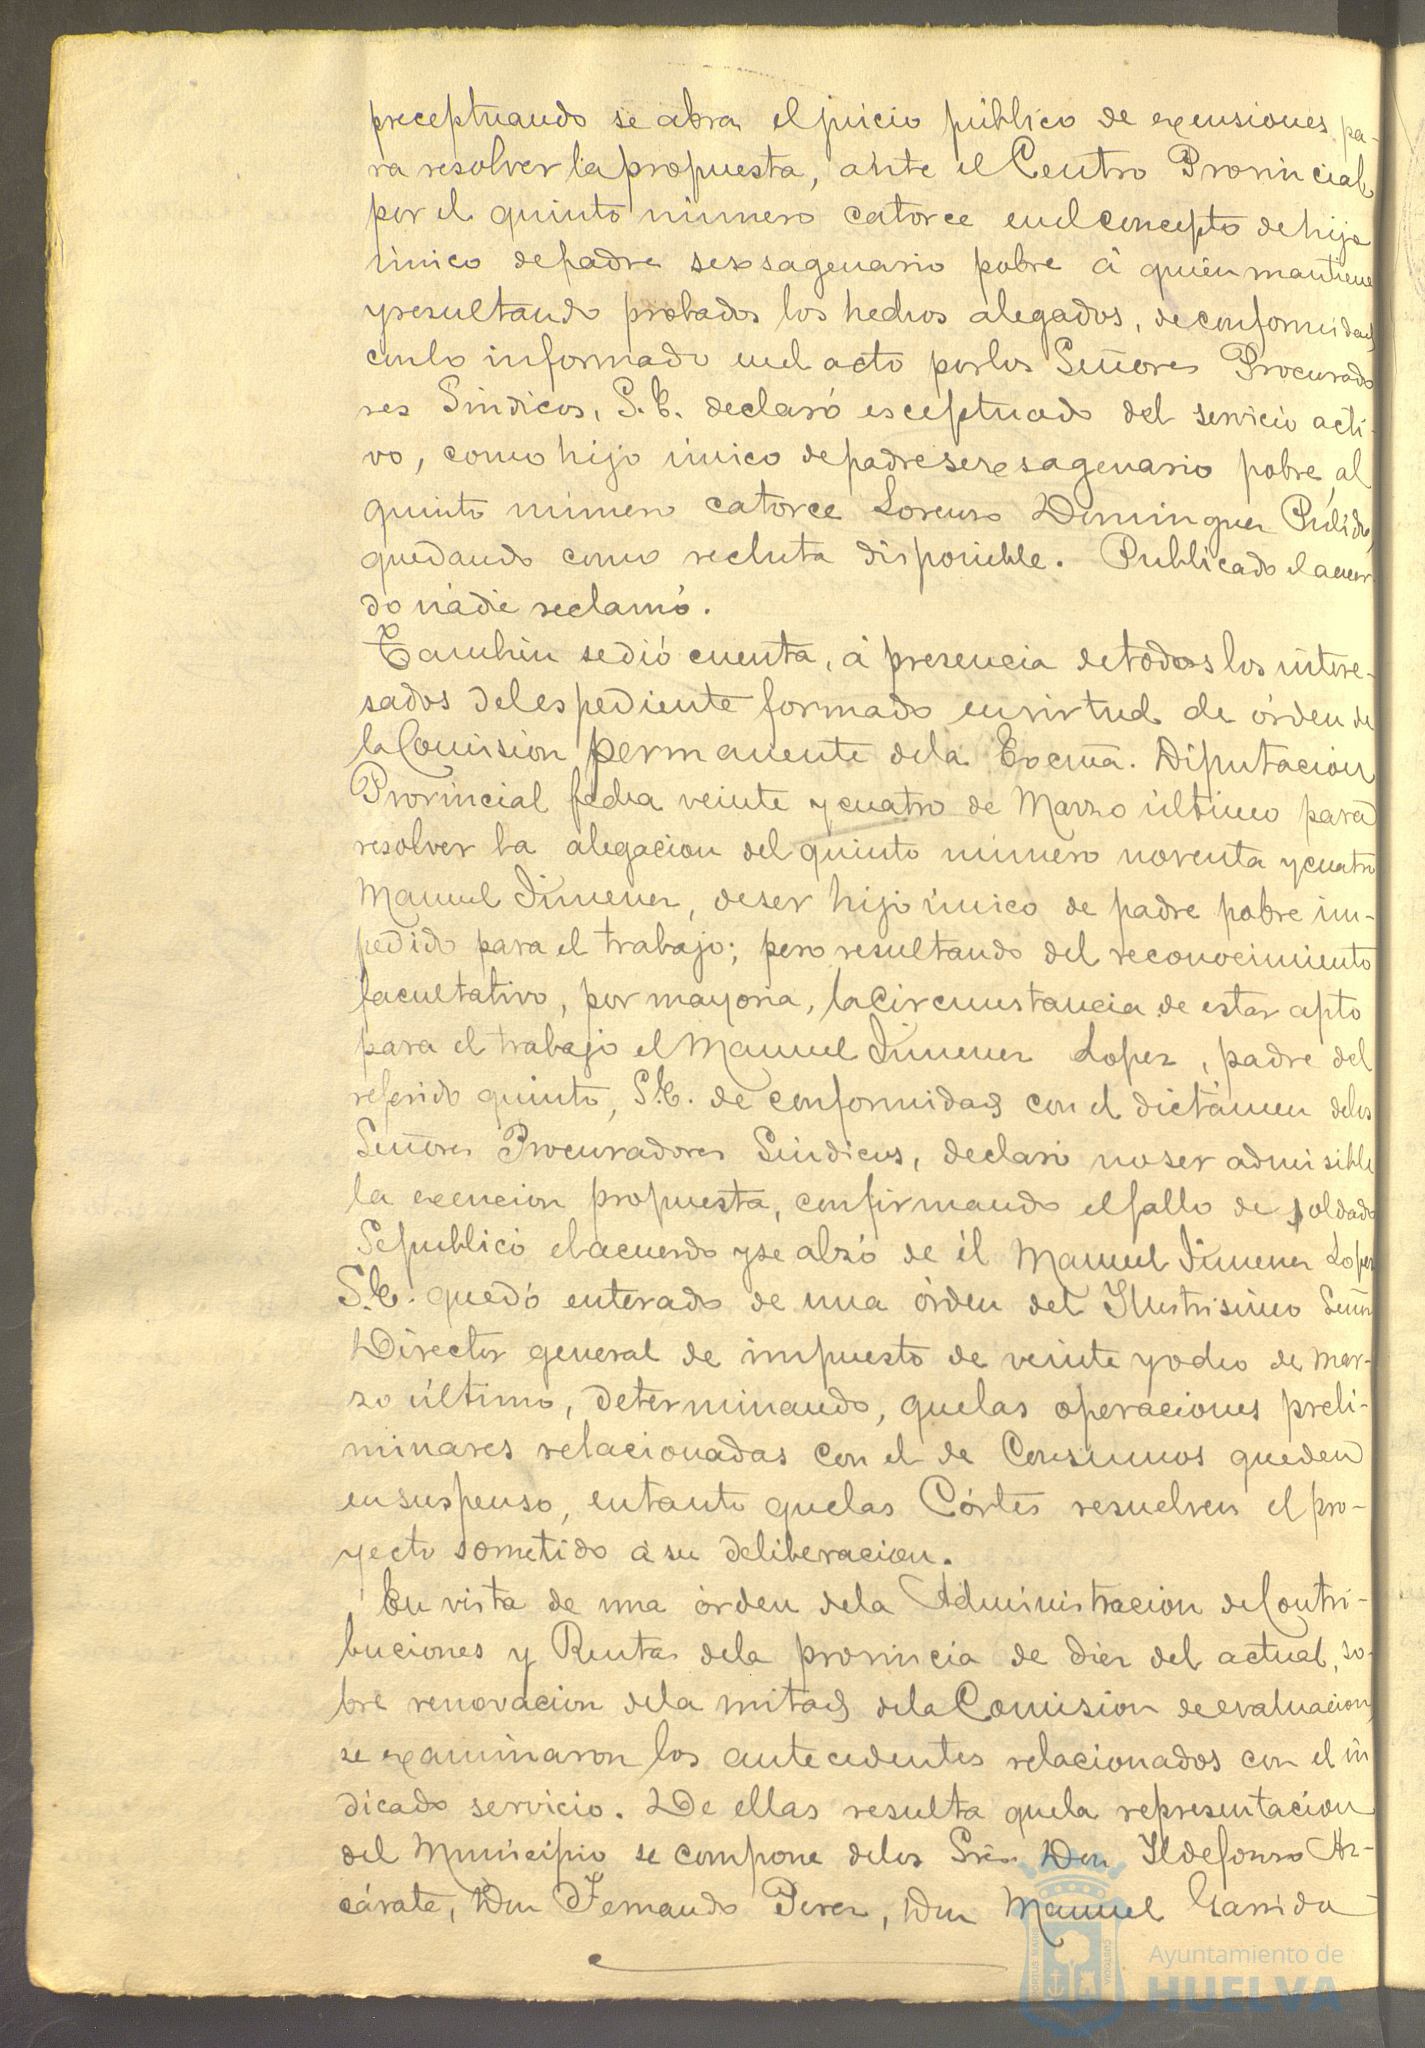 preceptuando se abra el juicio público de exensiones pa-
ra resolver la propuesta, ante el Centro Provincial
por el quinto número catorce en el concepto de hijo
único de padre sexsagenario pobre á quien mantiene
y resultando probados los hechos alegados, de conformidad
con lo informado en el acto por los Señores Procurado
res Sindicos, S. E. declaró esceptuado del servicio acti-
vo, como hijo único de padre sexsagenario pobre, al
quinto número catorce Lorenzo Dominguez Pulido,
quedando como recluta disponible. Publicado el acuer-
do nadie reclamó.
Tambien se dió cuenta, á presencia de todos los intere-
sados del espediente formado en virtud de órden de
la Comision permanente de la Excma. Diputacion
Provincial fecha veinte y cuatro de Marzo último para
resolver la alegacion del quinto número noventa y cuatro
Manuel Jimenez, de ser hijo único de padre pobre im-
pedido para el trabajo; pero resultando del reconocimiento
facultativo, por mayoria, la circunstancia de estar apto
para el trabajo el Manuel Jimenez Lopez, padre del
referido quinto, S. E. de conformidad con el dictámen delos
Señores Procuradores Sindicos, declaró no ser admisible
la exencion propuesta, confirmando el fallo de soldado
Se publicó el acuerdo y se alzó de él Manuel Jimenez Lopez
S. E. quedó enterado de una órden del Ilustrisimo Señor
Director general de impuesto de veinte y ocho de Mar-
zo último, determinando, que las operaciones preli-
minares relacionadas con el de Consumos queden
en suspenso, en tanto que las Córtes resuelven el pro-
yecto sometido á su deliberacion.
En vista de una órden de la Administracion de Contri-
buciones y Rentas de la provincia de diez del actual, so-
bre renovacion de la mitad de la Comision de evaluacion,
se examinaron los antecedentes relacionados con el in
dicado servicio. De ellas resulta que la representacion
del Municipio se compone de los Sres. Don Ildefonso Az-
cárate, Don Fernando Perez, Don Manuel Garrido
Ayuntamiento de
HUELVA